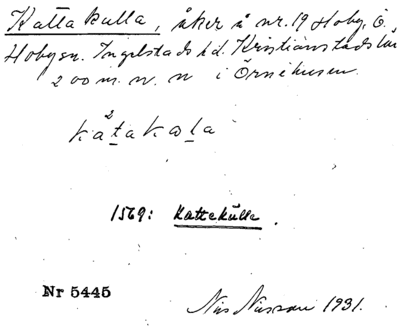 Katta kulla, åker å nr. 19 Hoby, Ö.
Hoby sn. Ingelstads hd. Kristianstads län
200 m. n. n i Örnahusen.
ká²t̲akəl̲a
1569: Kattekülle.
Nr 5445
Nils Nilsson 1931.